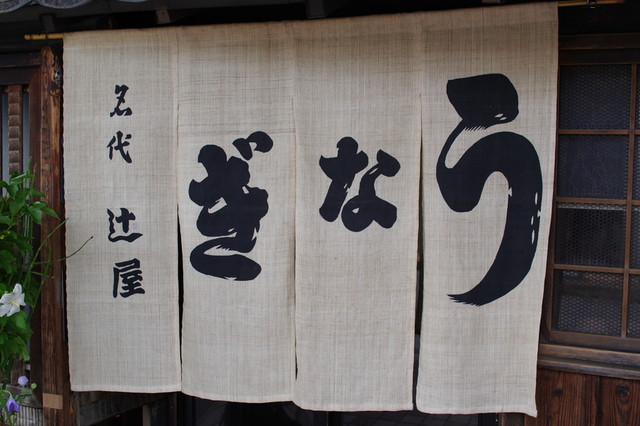 うなぎ
名代 辻屋